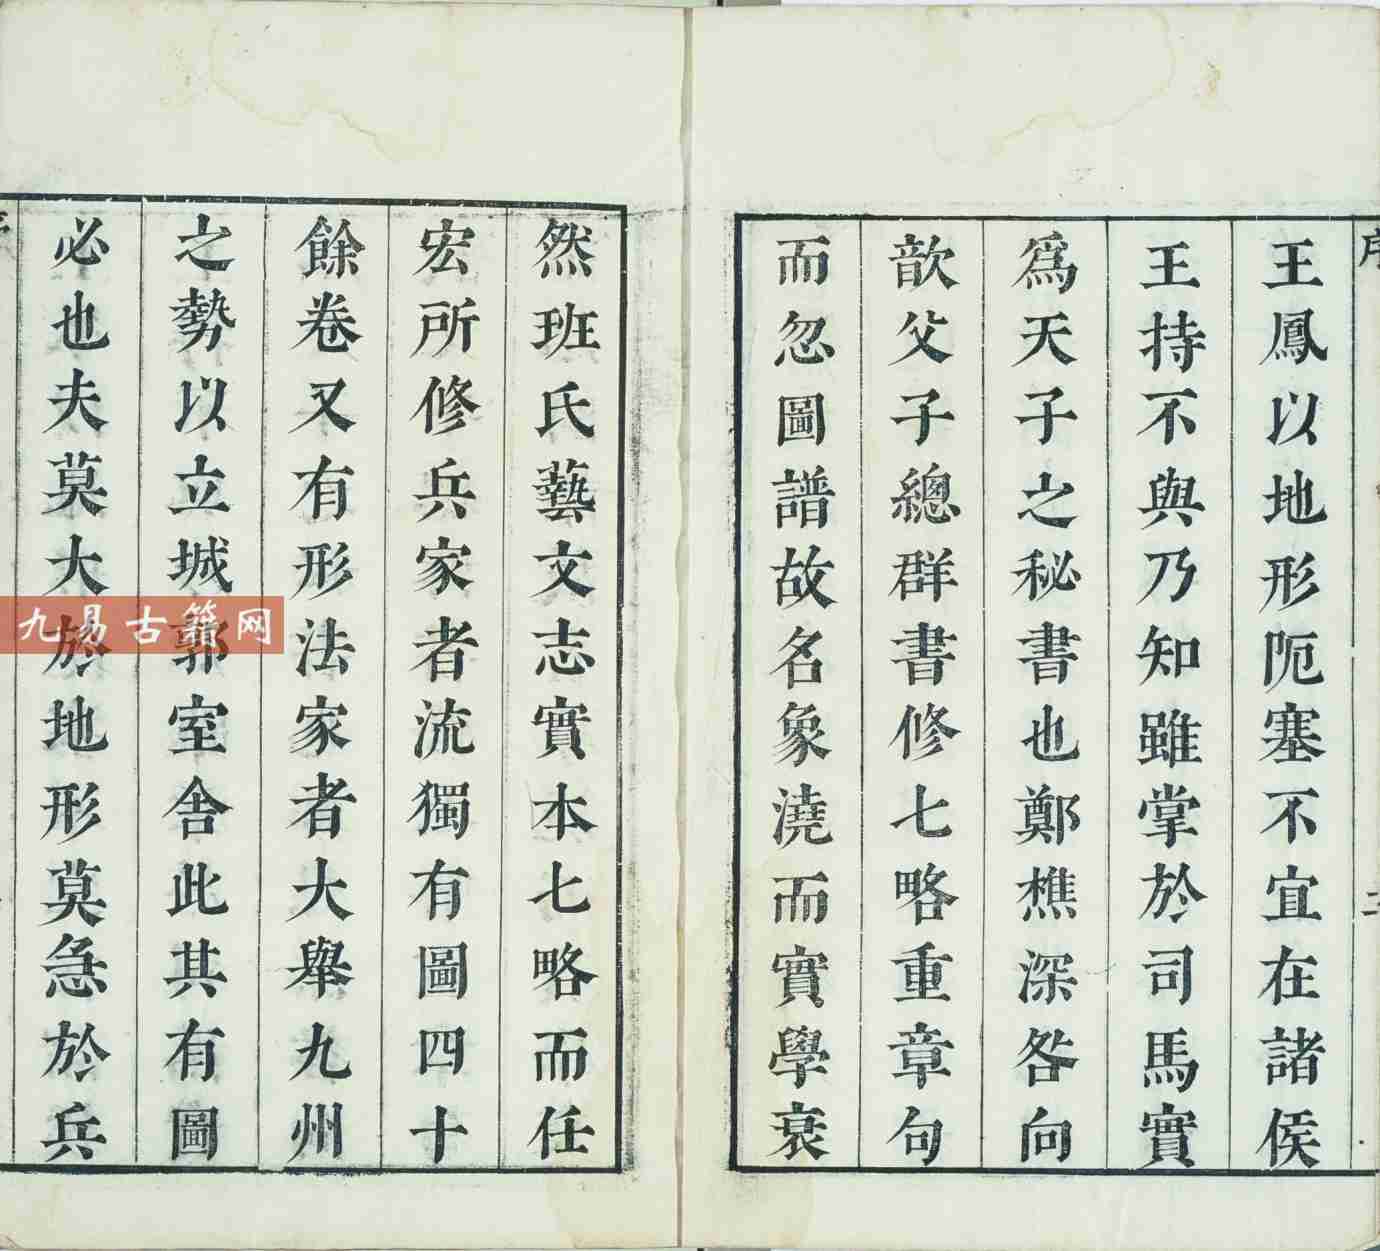 王鳳以地形阨塞不宜在諸侯
王持不與乃知雖掌於司馬實
爲天子之秘書也鄭樵深咎向
歆父子總群書修七略重章句
而忽圖譜故名象澆而實學衰
然班氏藝文志實本七略而任
宏所修兵家者流獨有圖四十
餘卷又有形法家者大舉九州
之勢以立城郭室舍此其有圖
必也夫莫大於地形莫急於兵
九易古籍网